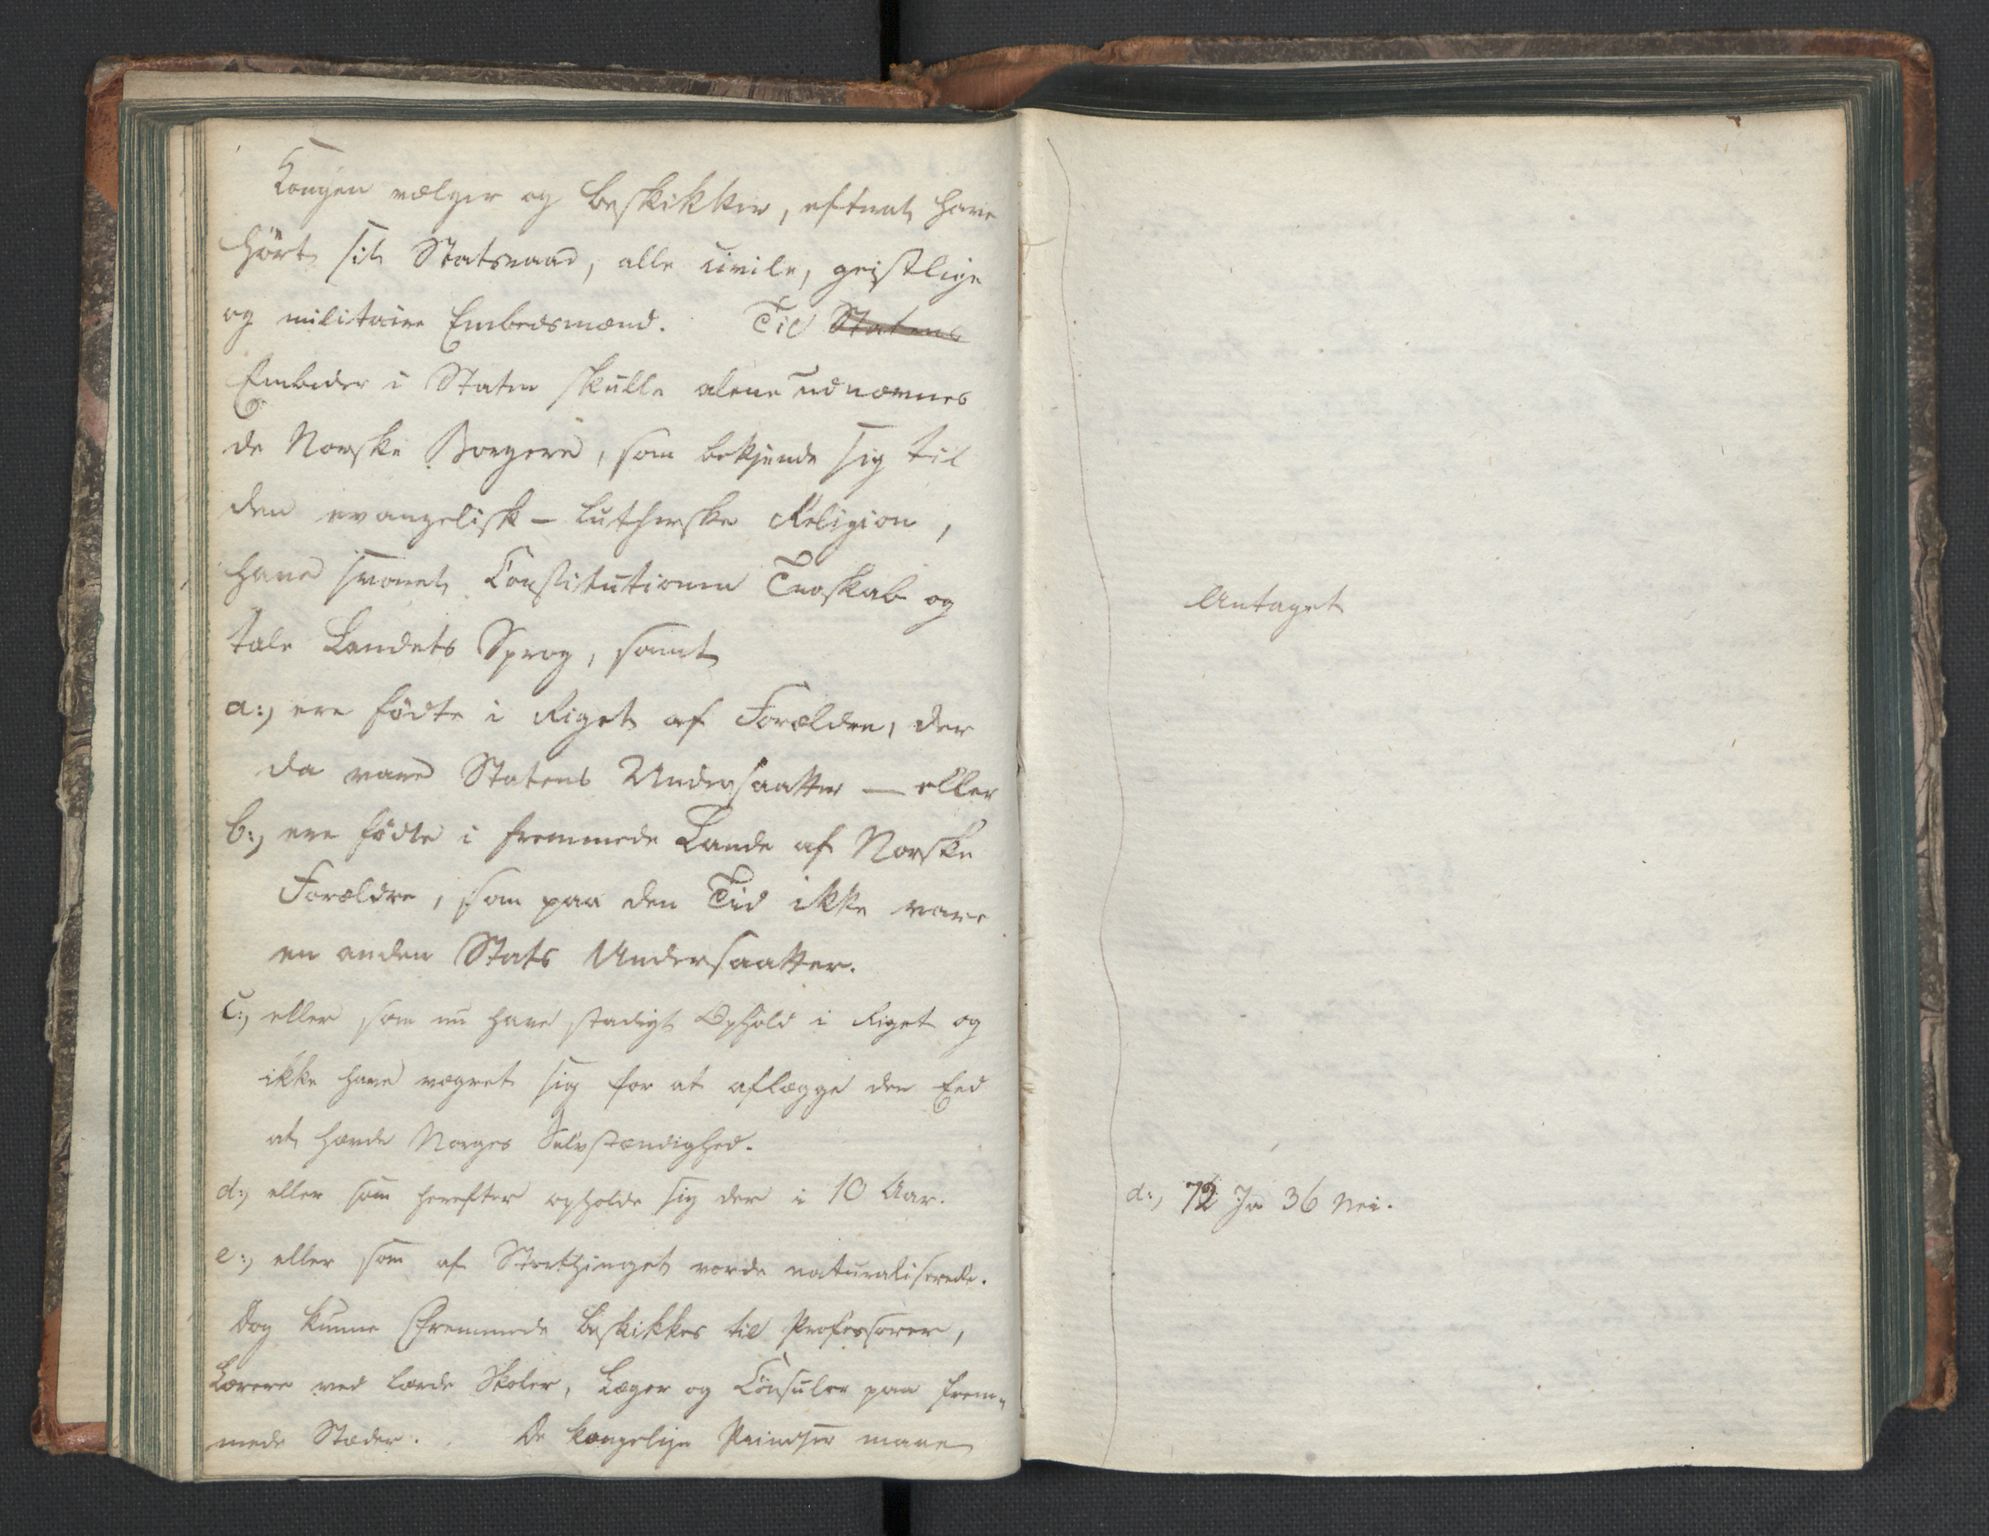 Kongen vælger og beskikker, efterat have
hört sit Statsraad, alle civile, geistlige
og militaire Embedsmænd. Til Statens
Embeder i Staten skulle alene udnævnes
de Norske Borgere, som bekjende sig til
den evangelisk-lutherske Religion,
have svoret Constitutionen Troskab og
tale Landets Sprog, samt
a:, ere födte i Riget af Forældre, der
da vare Statens Undersaatter — eller
b:, ere födte i fremmede Lande af Norske
Forældre, som paa den Tid ikke vare
en anden Stats Undersaatter.
c:, eller som nu have stadigt Ophold i Riget og
ikke have vægret sig for at aflægge den Eed
at hævde Norges Selvstændighed.
d:, eller som herefter opholde sig der i 10 Aar.
e:, eller som af Storthinget vorde naturaliserede.
Dog kunne Fremmede beskikkes til Professorer,
Lærere ved lærde Skoler, Læger og Consuler paa frem-
mede Stæder. De kongelige Prindser maae
Antaget
d:, 72 Ja 36 Nei.